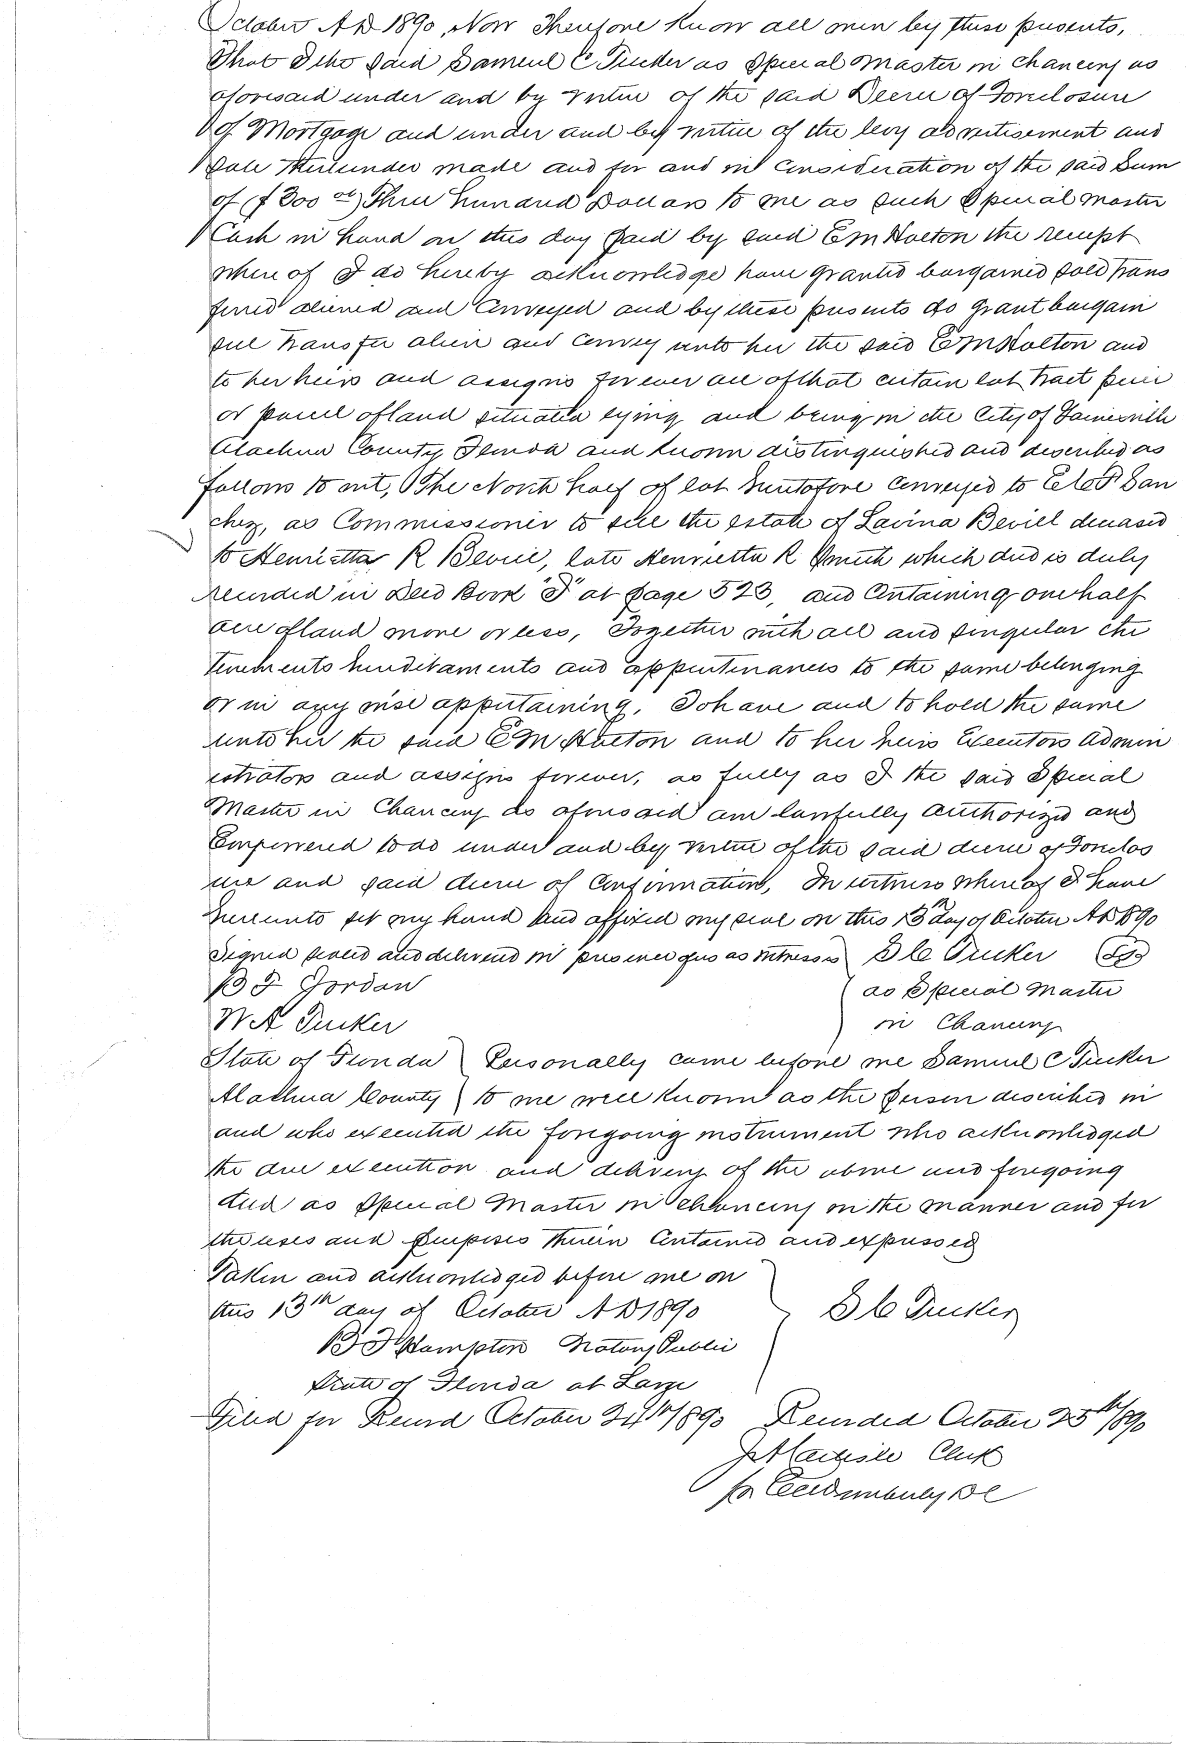 October AD 1890, Now Therefore Know all men by these presents,
That I the said Samuel C Tucker as Special Master in Chancery as
aforesaid under and by virtue of the said Decree of Foreclosure
of Mortgage and under and by virtue of the levy advertisement and
sale thereunder made and for and in consideration of the said Sum
of ($300 00) Three hundred Dollars to me as such Special Master
Cash in hand on this day paid by said E M Holton the receipt
where of I do hereby acknowledge have granted bargained sold trans
ferred aliened and Conveyed and by these presents do grant bargain
sell transfer alien and convey unto her the said E M Holton and
to her heirs and assigns forever all of that certain lot tract piece
or parcel of land situated lying and being in the City of Gainesville
Alachua County Florida and known distinguished and described as
follows to wit, The North half of lot heretofore Conveyed to San
chez, as Commissioner to sell the estate of Lavina Bevill deceased
to Henrietta R Bevill, late Henrietta R Smith which deed is duly
recorded in Deed Book at page 523, and Containing one half
acre of land more or less, Together with all and singular the
tenements hereditaments and appurtenances to the same belonging
or in any wise appertaining, To have and to hold the same
unto her the said E M Holton and to her heirs Executors Admin
istrators and assigns forever, as fully as I the said Special
Master in Chancery as aforesaid am lawfully authorized and
Empowered to do under and by virtue of the said decree of Foreclos
ure and said decree of Confirmation, In witness where of I have
hereunto set my hand and affixed my seal on this 13th day of October AD 1890
Signed sealed and delivered in presence of us as witnesses S C Tucker
B F Jordan as Special Master
W A Tucker in Chancery
State of Florida Personally came before me Samuel C Tucker
Alachua County to me well known as the person described in
and who executed the foregoing instrument who acknowledged
the due execution and delivery of the above and foregoing
deed as Special Master in Chancery in the manner and for
the uses and purposes therein Contained and expressed
Taken and acknowledged before me on
this 13th day of October AD 1890 S C Tucker
B F Hampton Notary Public
State of Florida at Large
Filed for Record October 24th/890 Recorded October 25th/890
Clerk
for DC